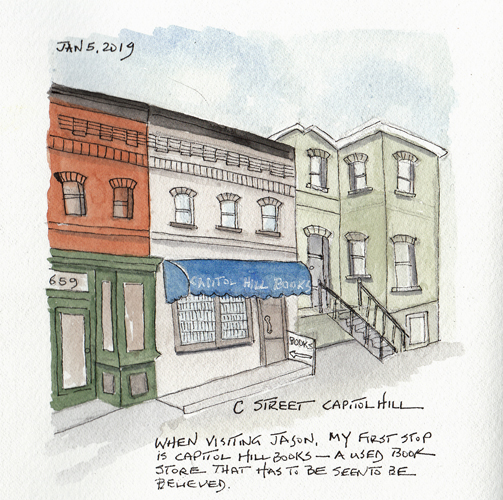 JAN 5, 2019
659
CAPITOL HILL BOOKS
BOOKS
C STREET CAPITOL HILL
WHEN VISITING JASON, MY FIRST STOP
IS CAPITOL HILL BOOKS — A USED BOOK
STORE THAT HAS TO BE SEEN TO BE
BELIEVED.